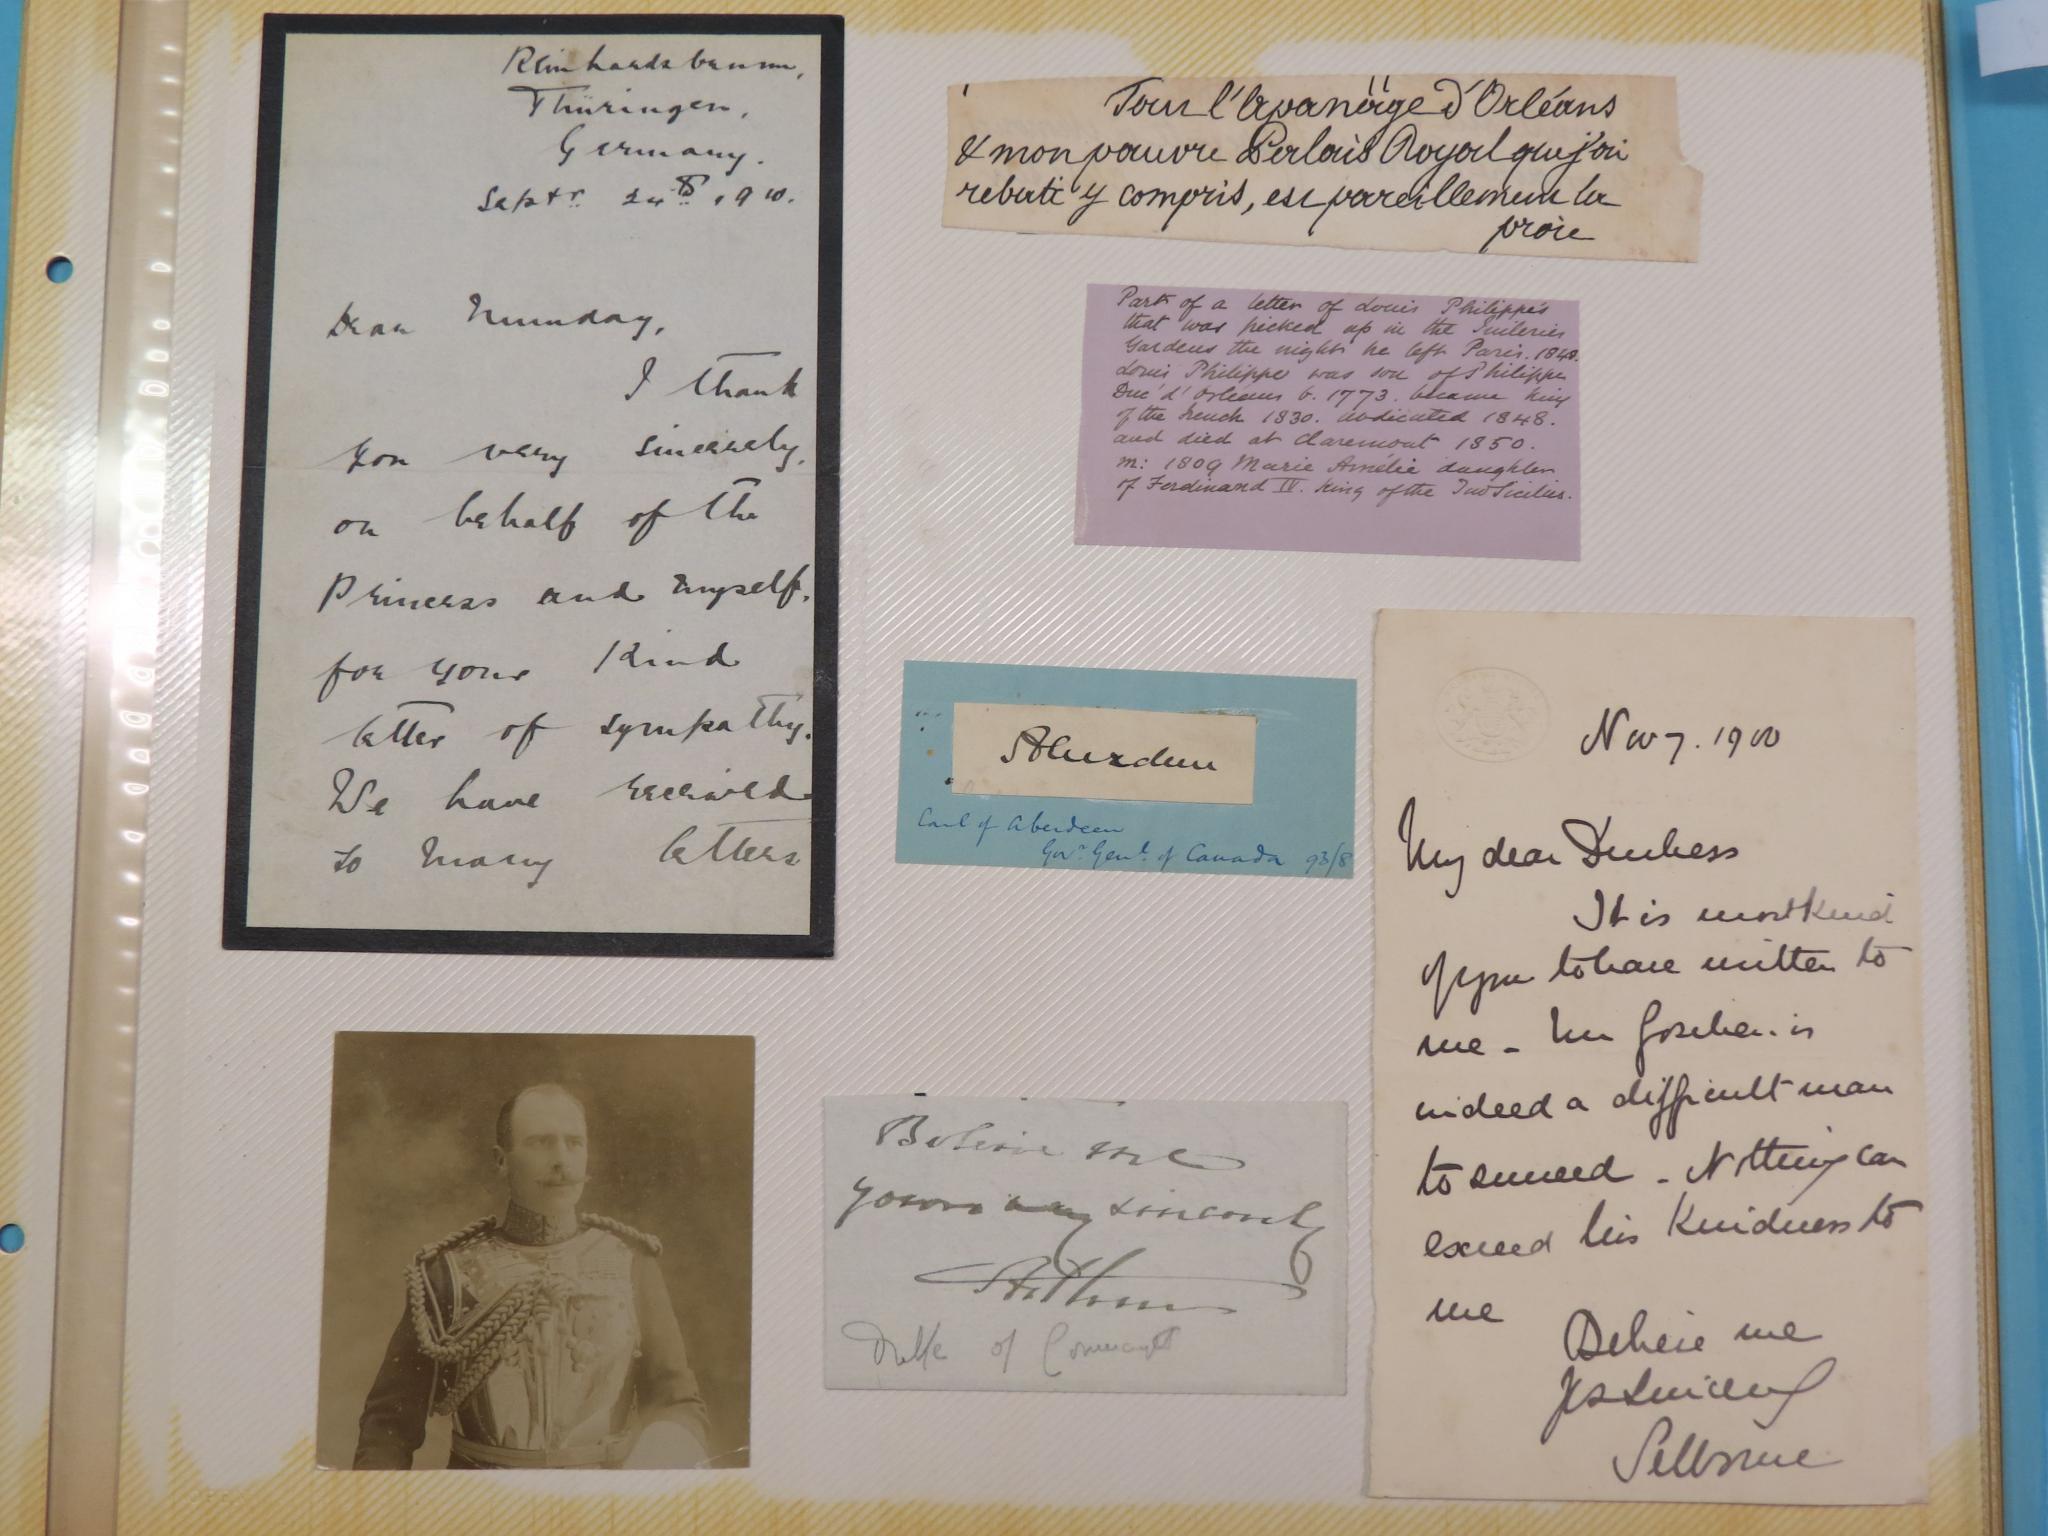 Reinhardsbrunn,
Thüringen,
Germany.
Septr. 24th 1910.
Dear Munday,
I thank
you very sincerely,
on behalf of the
Princess and myself,
for your kind
letter of sympathy.
We have received
so many letters
Tout l'Apanage d'Orléans
& mon pauvre Palais Royal que j'ai
rebati y compris, est pareillement la
proie
Part of a letter of Louis Philippe's
that was picked up in the Tuileries
Gardens the night he left Paris. 1848.
Louis Philippe was son of Philippe
Duc d'Orléans b. 1773. became King
of the French 1830. abdicated 1848.
and died at Claremont 1850.
m: 1809 Marie Amélie daughter
of Ferdinand IV. King of the Two Sicilies.
Aberdeen
Earl of Aberdeen
Govr. Genl. of Canada 93/8
Believe me
yours very sincerely
Arthur
Duke of Connaught
Nov 7. 1900
My dear Duchess
It is most kind
of you to have written to
me - Mr Goschen is
indeed a difficult man
to succeed - Nothing can
exceed his kindness to
me
Believe me
Yrs sincerely
Selborne